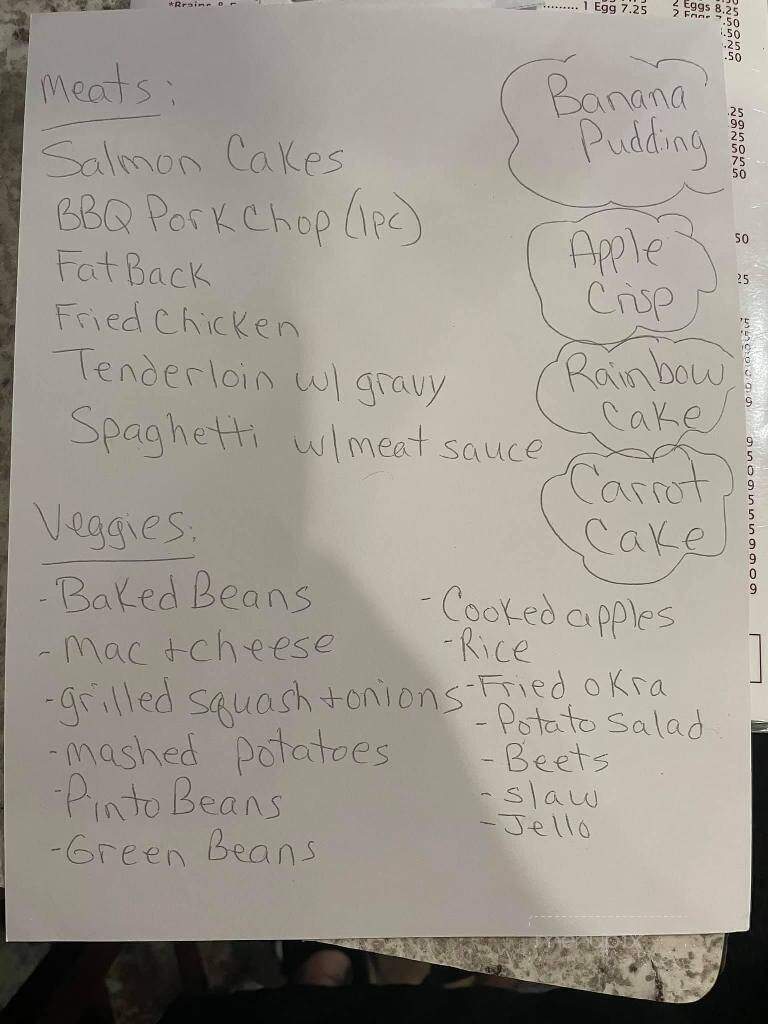 *Brains
1 Egg 7.25
2 Eggs 8.25
.50
.50
.25
.50
Meats:
Salmon Cakes
BBQ Pork Chop (1pc)
Fat Back
Fried Chicken
Tenderloin w/ gravy
Spaghetti w/meat sauce
Banana
Pudding
Apple
Crisp
Rainbow
Cake
Carrot
Cake
.25
.99
25
50
75
50
50
25
Veggies:
- Baked Beans
- Mac + cheese
- grilled squash + onions
- mashed potatoes
- Pinto Beans
- Green Beans
- Cooked apples
- Rice
- Fried okra
- Potato Salad
- Beets
- slaw
- Jello
menupix